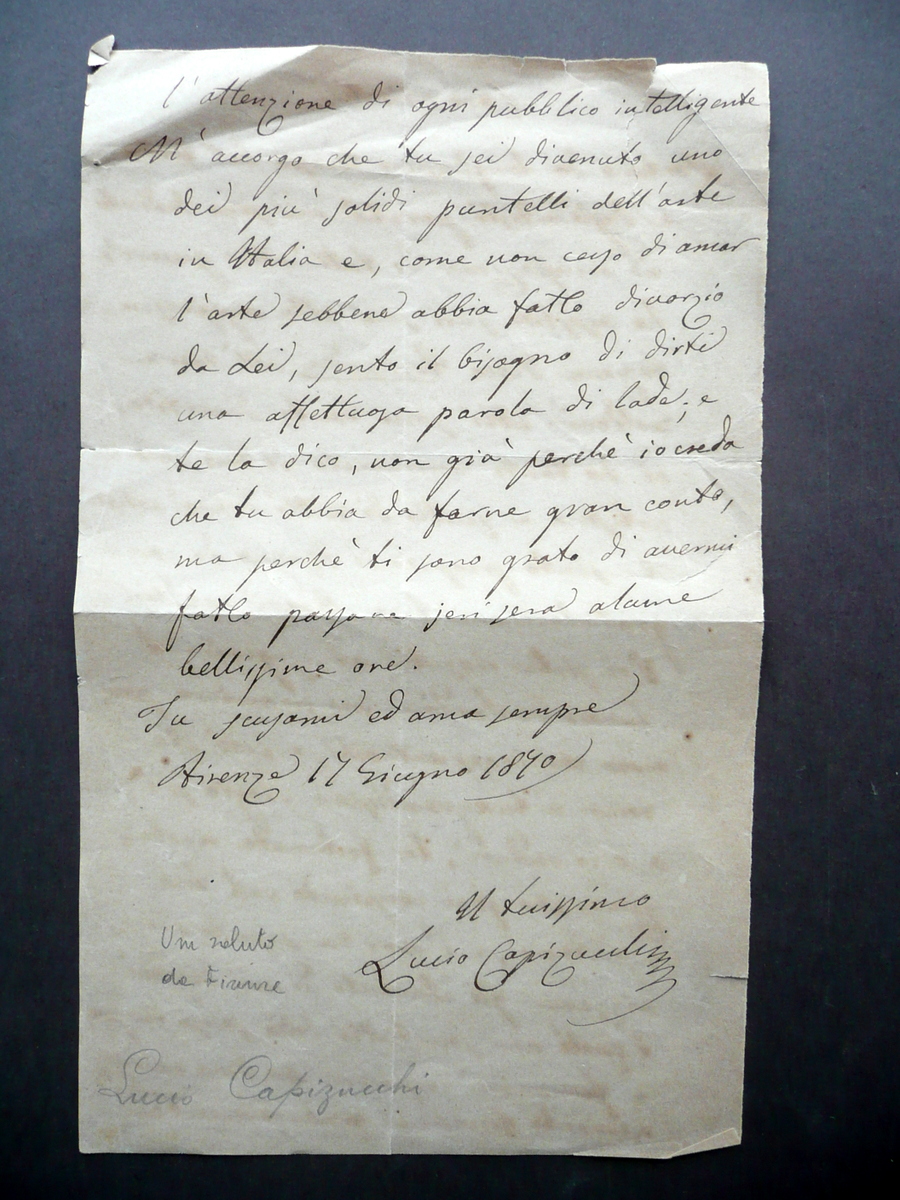 l'attenzione di ogni pubblico intelligente
M'accorgo che tu sei divenuto uno
dei più solidi puntelli dell'arte
in Italia e, come non cesso di amar
l'arte sebbene abbia fatto divorzio
da Lei, sento il bisogno di dirti
una affettuosa parola di lode; e
te la dico, non già perchè io creda
che tu abbia da farne gran conto,
ma perchè ti sono grato di avermi
fatto passare jeri sera alcune
bellissime ore.
Tu scusami ed ama sempre
Firenze 17 Giugno 1870
Il tuissimo
Lucio Capizucchi
Un saluto
da Firenze
Lucio Capizucchi